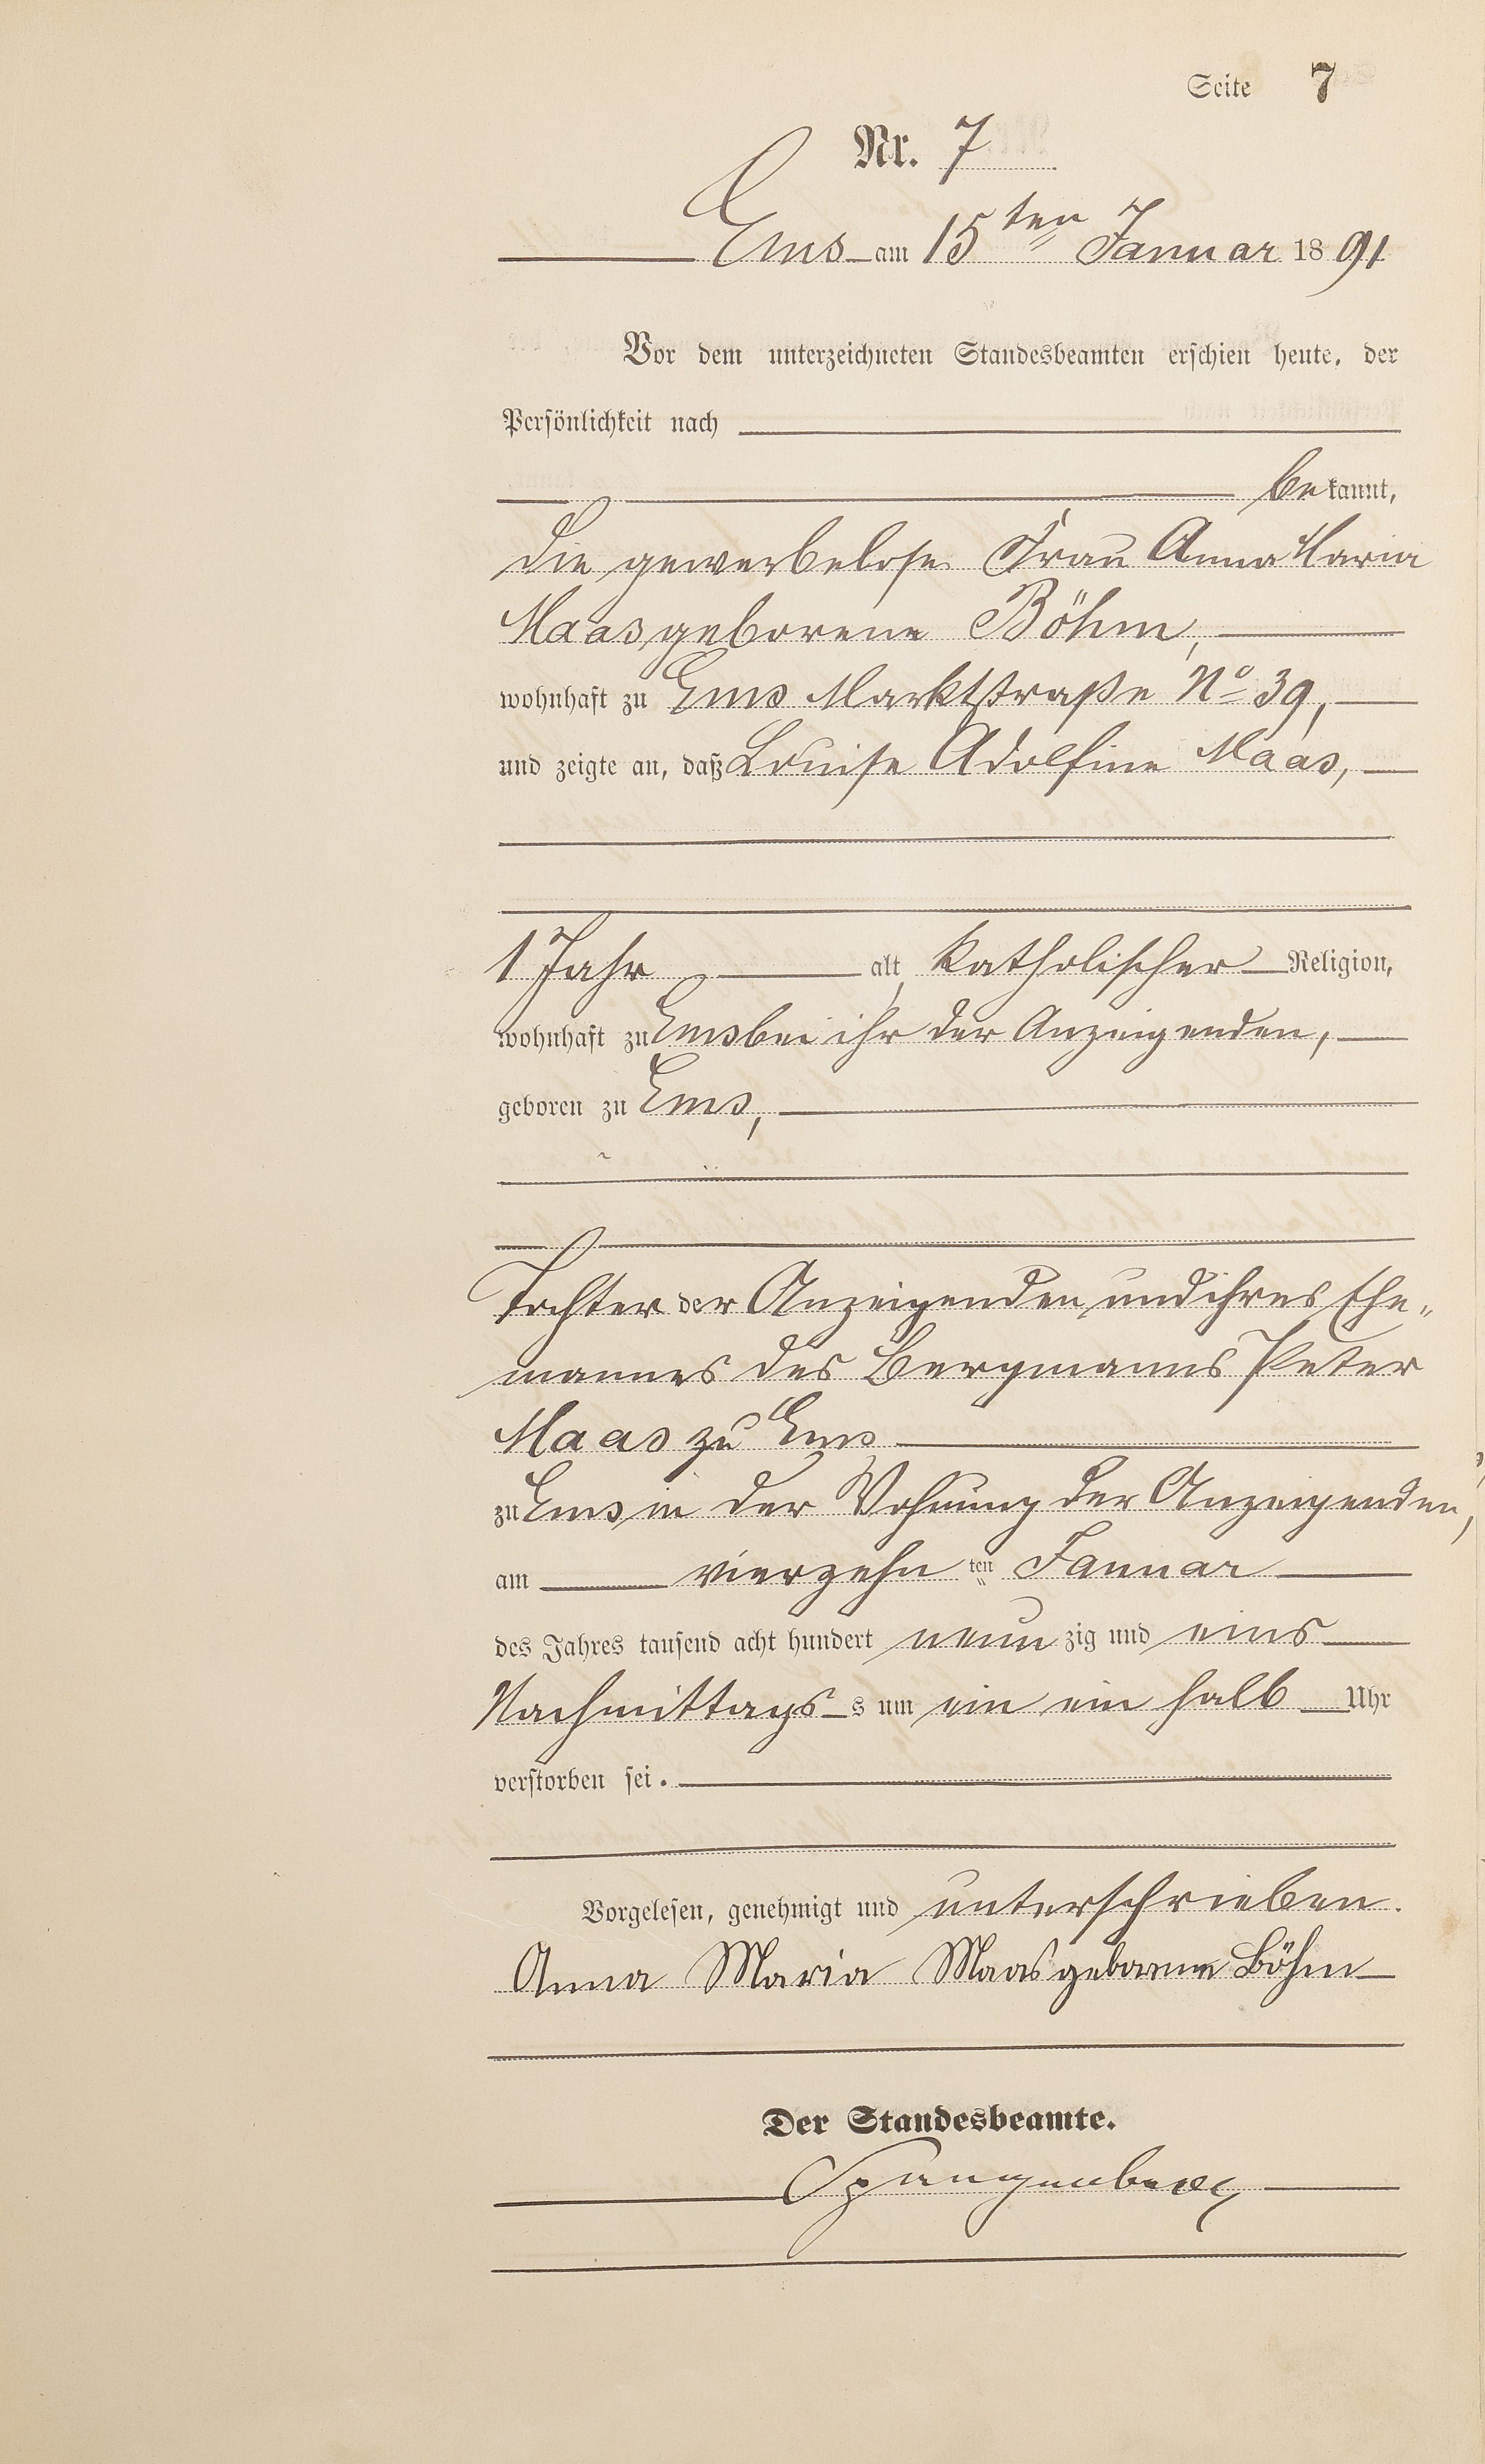 Seite 7
Nr. 7
Ems am 15ten Januar 1891
Vor dem unterzeichneten Standesbeamten erschien heute, der
Persönlichkeit nach
bekannt,
die gewerbelose Frau Anna Maria
Maas geborene Böhm,
wohnhaft zu Ems Marktstraße No 39,
und zeigte an, daß Louise Adolfine Maas,
1 Jahr alt, katholischer Religion,
wohnhaft zu Ems bei ihr der Anzeigenden,
geboren zu Ems,
Tochter der Anzeigenden und ihres Ehe„
mannes des Bergmanns Peter
Maas zu Ems
zu Ems in der Wohnung der Anzeigenden,
am vierzehn ten Januar
des Jahres tausend acht hundert neun zig und eins
Nachmittags s um ein ein halb Uhr
verstorben sei.
Vorgelesen, genehmigt und unterschrieben.
Anna Maria Maas geborene Böhm
Der Standesbeamte.
Spangenberg